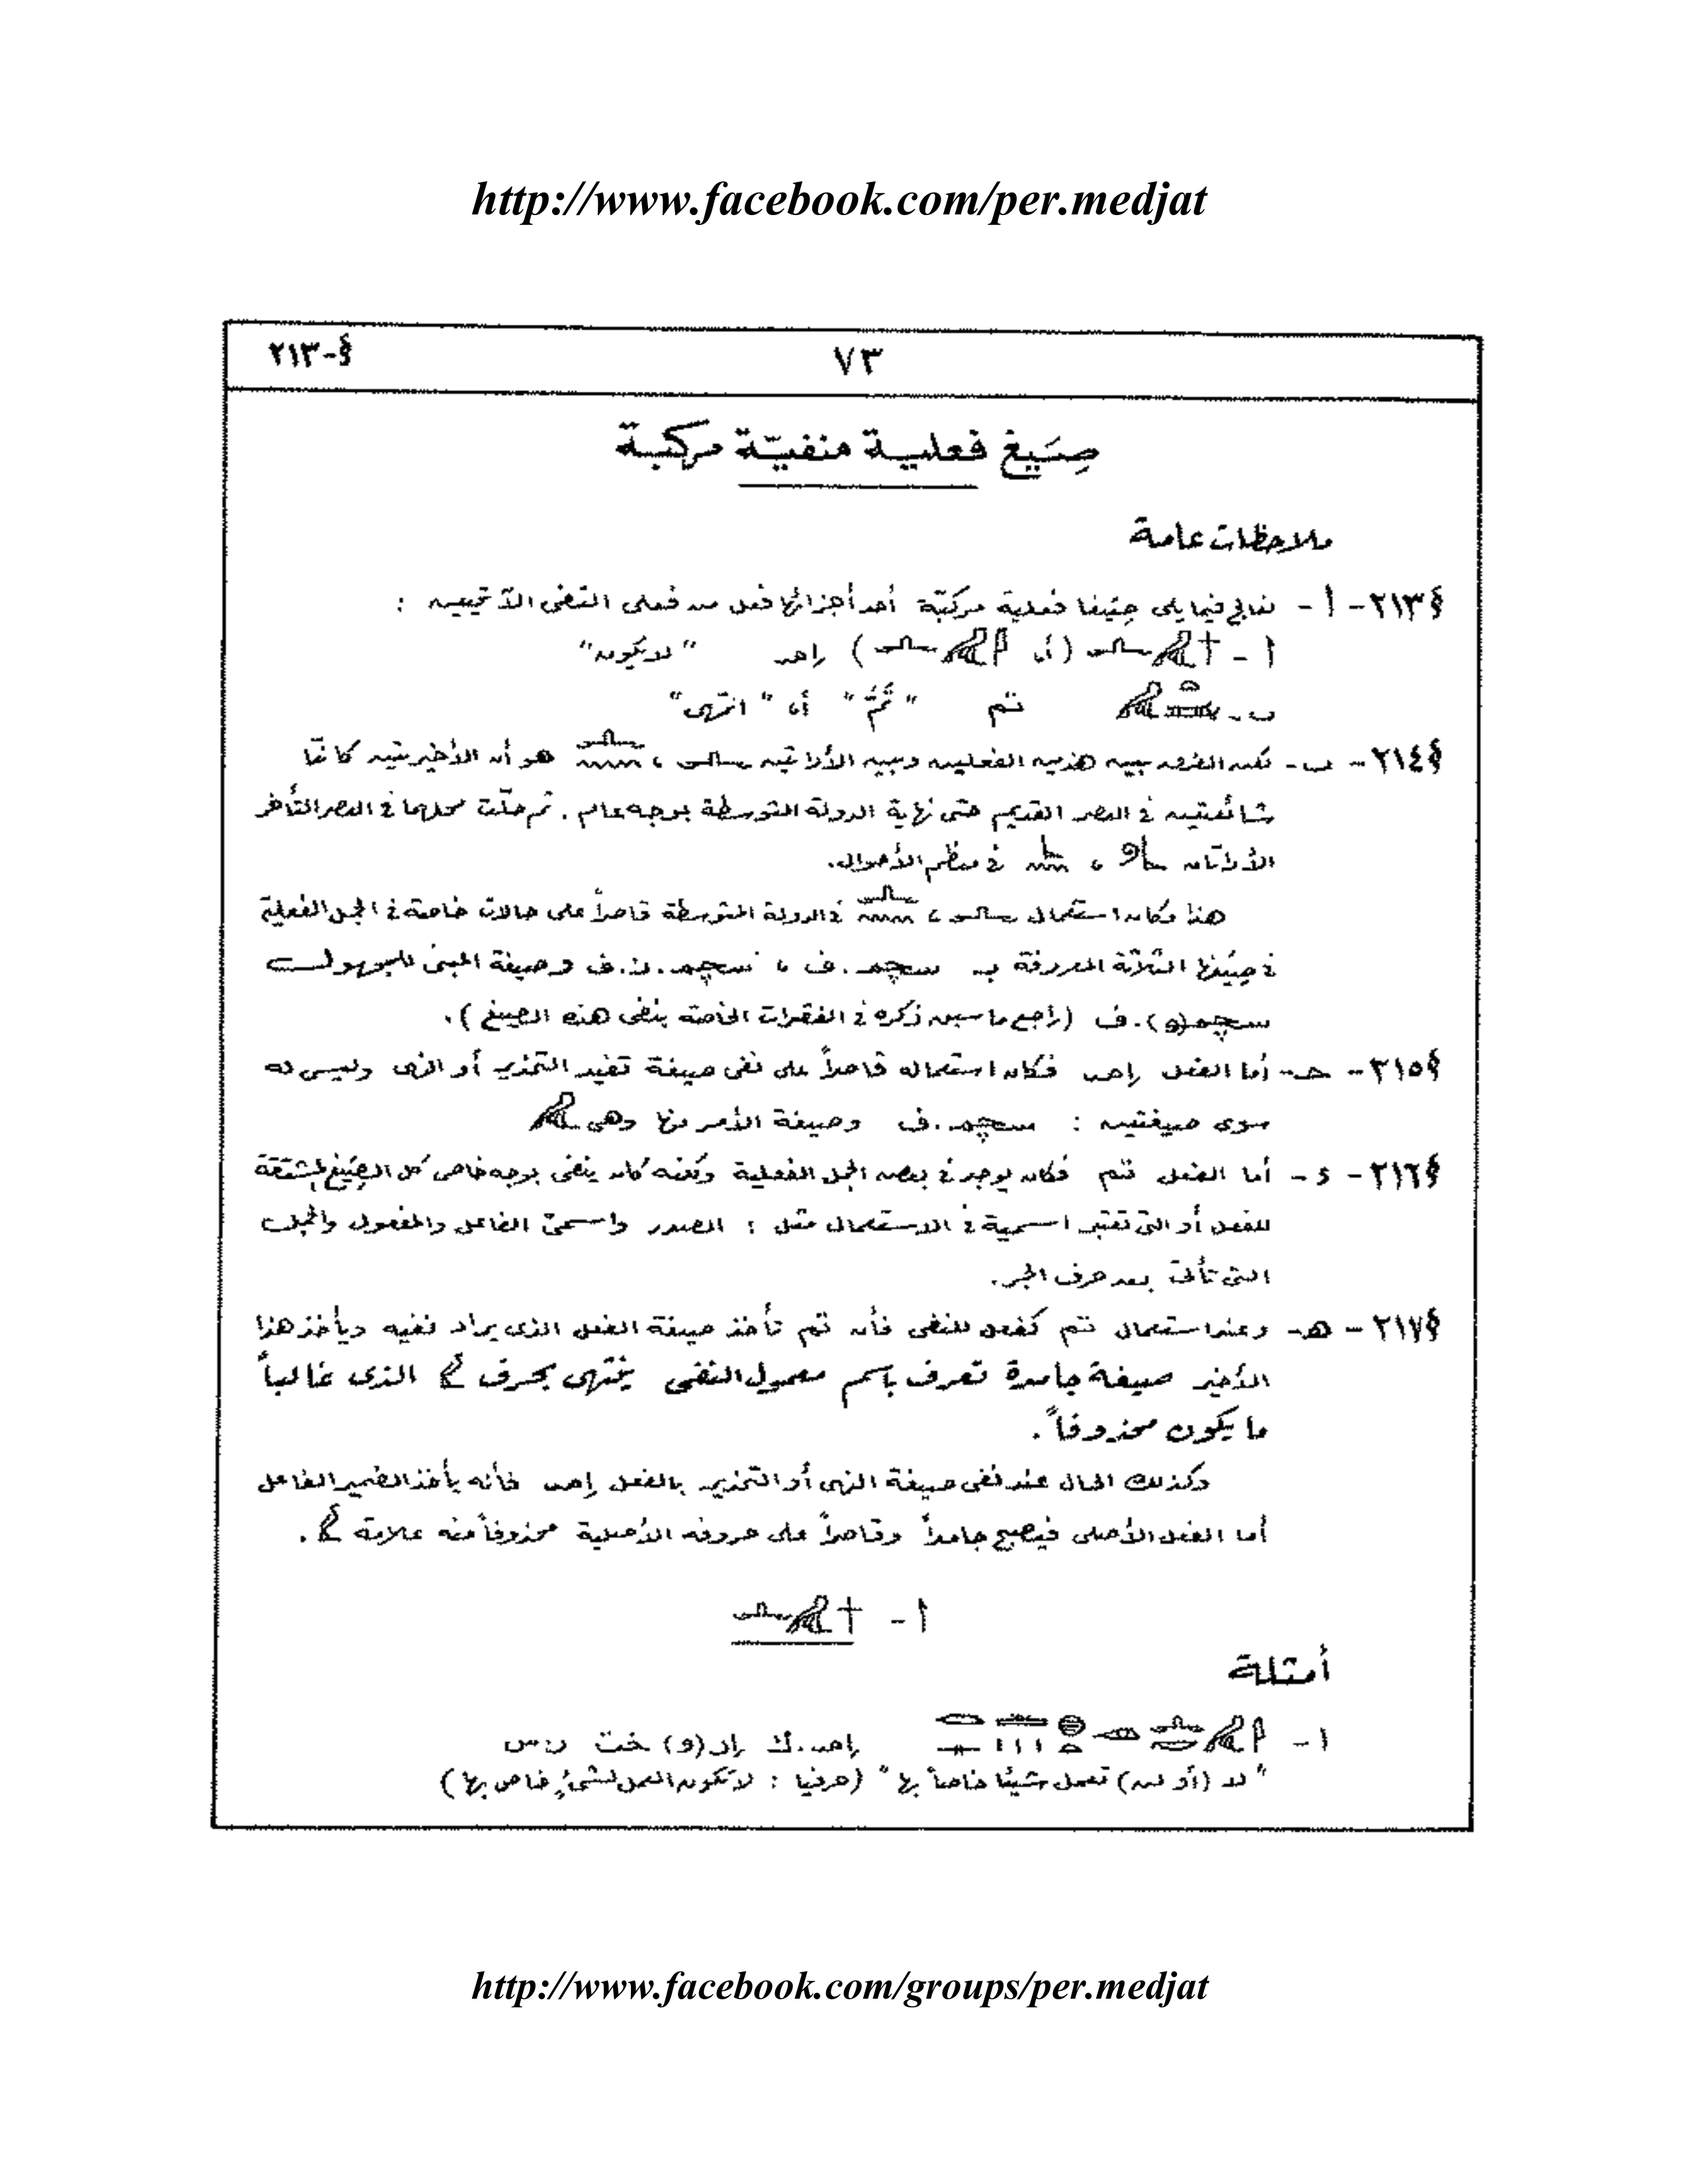 http://www.facebook.com/per.medjat
§-٢١٣
٧٣
صِيَغ فعلية منفيّة مركبة
ملاحظات عامة
§٢١٣- أ - نعالج فيما يلى صِيَغا فعلية مركبّة أحد أجزائها فعل من فعلى النفى الآتيين :
أ - 𓏶𓅓𓂜 (أو 𓇋𓅓𓂜) إم "لا يكون"
ب - 𓍃𓅓 تم "تَمَّ" أو "انتهى"
§٢١٤- ب - لكن الفرق بين هذين الفعلين وبين الأداتين 𓂜 ، 𓂜𓈖 هو أن الأخيرتين كانتا
شائعتين فى العصر القديم حتى نهاية الدولة المتوسطة بوجه عام . ثم حلّت محلهما فى العصر المتأخر
الأداتان 𓃀𓅱 ، 𓃀𓈖 فى معظم الأحوال.
هذا وكان استعمال 𓂜 ، 𓂜𓈖 فى الدولة المتوسطة قاصراً على حالات خاصة فى الجمل الفعلية
فى صِيَغها الثلاثة المعروفة بـ سچم . ف ، سچم . ن . ف وصيغة المبنى للمجهول
سچم(و) . ف (راجع ما سبق ذكره فى الفقرات الخاصة بنفى هذه الصيغ ) .
§٢١٥- حـ - أما الفعل إم فكان استعماله قاصراً على نفى صيغة تفيد التحذير أو النهى وليس له
سوى صيغتين : سچم . ف وصيغة الأمر منها وهى 𓅓
§٢١٦- د - أما الفعل تم فكان يوجد فى بعض الجمل الفعلية ولكنه كان ينفى بوجه خاص كل الصِيَغ المشتقة
للفعل أو التى تعتبر اسمية فى الاستعمال مثل : المصدر واسمىّ الفاعل والمفعول والجمل
التى تأتى بعد حرف الجر .
§٢١٧- هـ - وعند استعمال تم كفعل للنفى فأن تم تأخذ صيغة الفعل الذى يراد نفيه ويأخذ هذا
الأخير صيغة جامدة تعرف باسم معمول النفى ينتهى بحرف 𓅱 الذى غالباً
ما يكون محذوفاً .
وكذلك الحال عند نفى صيغة النهى أو التحذير بالفعل إم فأنه يأخذ الضمير الفاعل
أما الفعل الأصلى فيصبح جامداً وقاصراً على حروفه الأصلية محذوفاً منه علامة 𓅱 .
أ - 𓏶𓅓𓂜
أمثلة
١ - إم . ك إر(و) خت ر . س
"لا (أو لن) تعمل شيئا خاصاً بها" (حرفيا : لا تكون العمل لشئٍ خاص بها)
http://www.facebook.com/groups/per.medjat